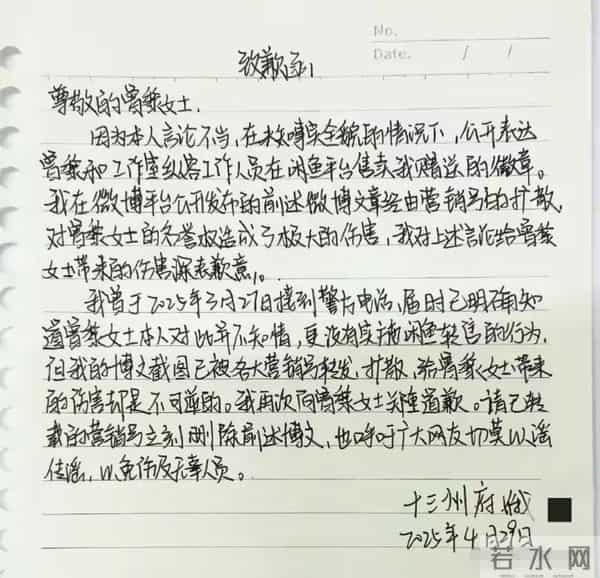 No.
Date. / /
致歉函
尊敬的曾黎女士.
因为本人言论不当,在未知晓实全貌的情况下,公开表达
曾黎和工作室纵容工作人员在闲鱼平台售卖我赠送的徽章。
我在微博平台公开发布的前述微博文章经由营销号的扩散,
对曾黎女士的名誉权造成了极大的伤害,我对上述言论给曾黎
女士带来的伤害深表歉意。
我曾于2025年3月27日接到警方电话,届时已明确知
道曾黎女士本人对此并不知情,更没有实施闲鱼转售的行为,
但我的博文截图已被各大营销号转发、扩散,给曾黎女士带来
的伤害却是不可逆的。我再次向曾黎女士郑重道歉。请已转
载的营销号立刻删除前述博文,也呼吁广大网友切莫以谣
传谣,以免伤及无辜人员。
十三州府
2025年4月29日
若水网